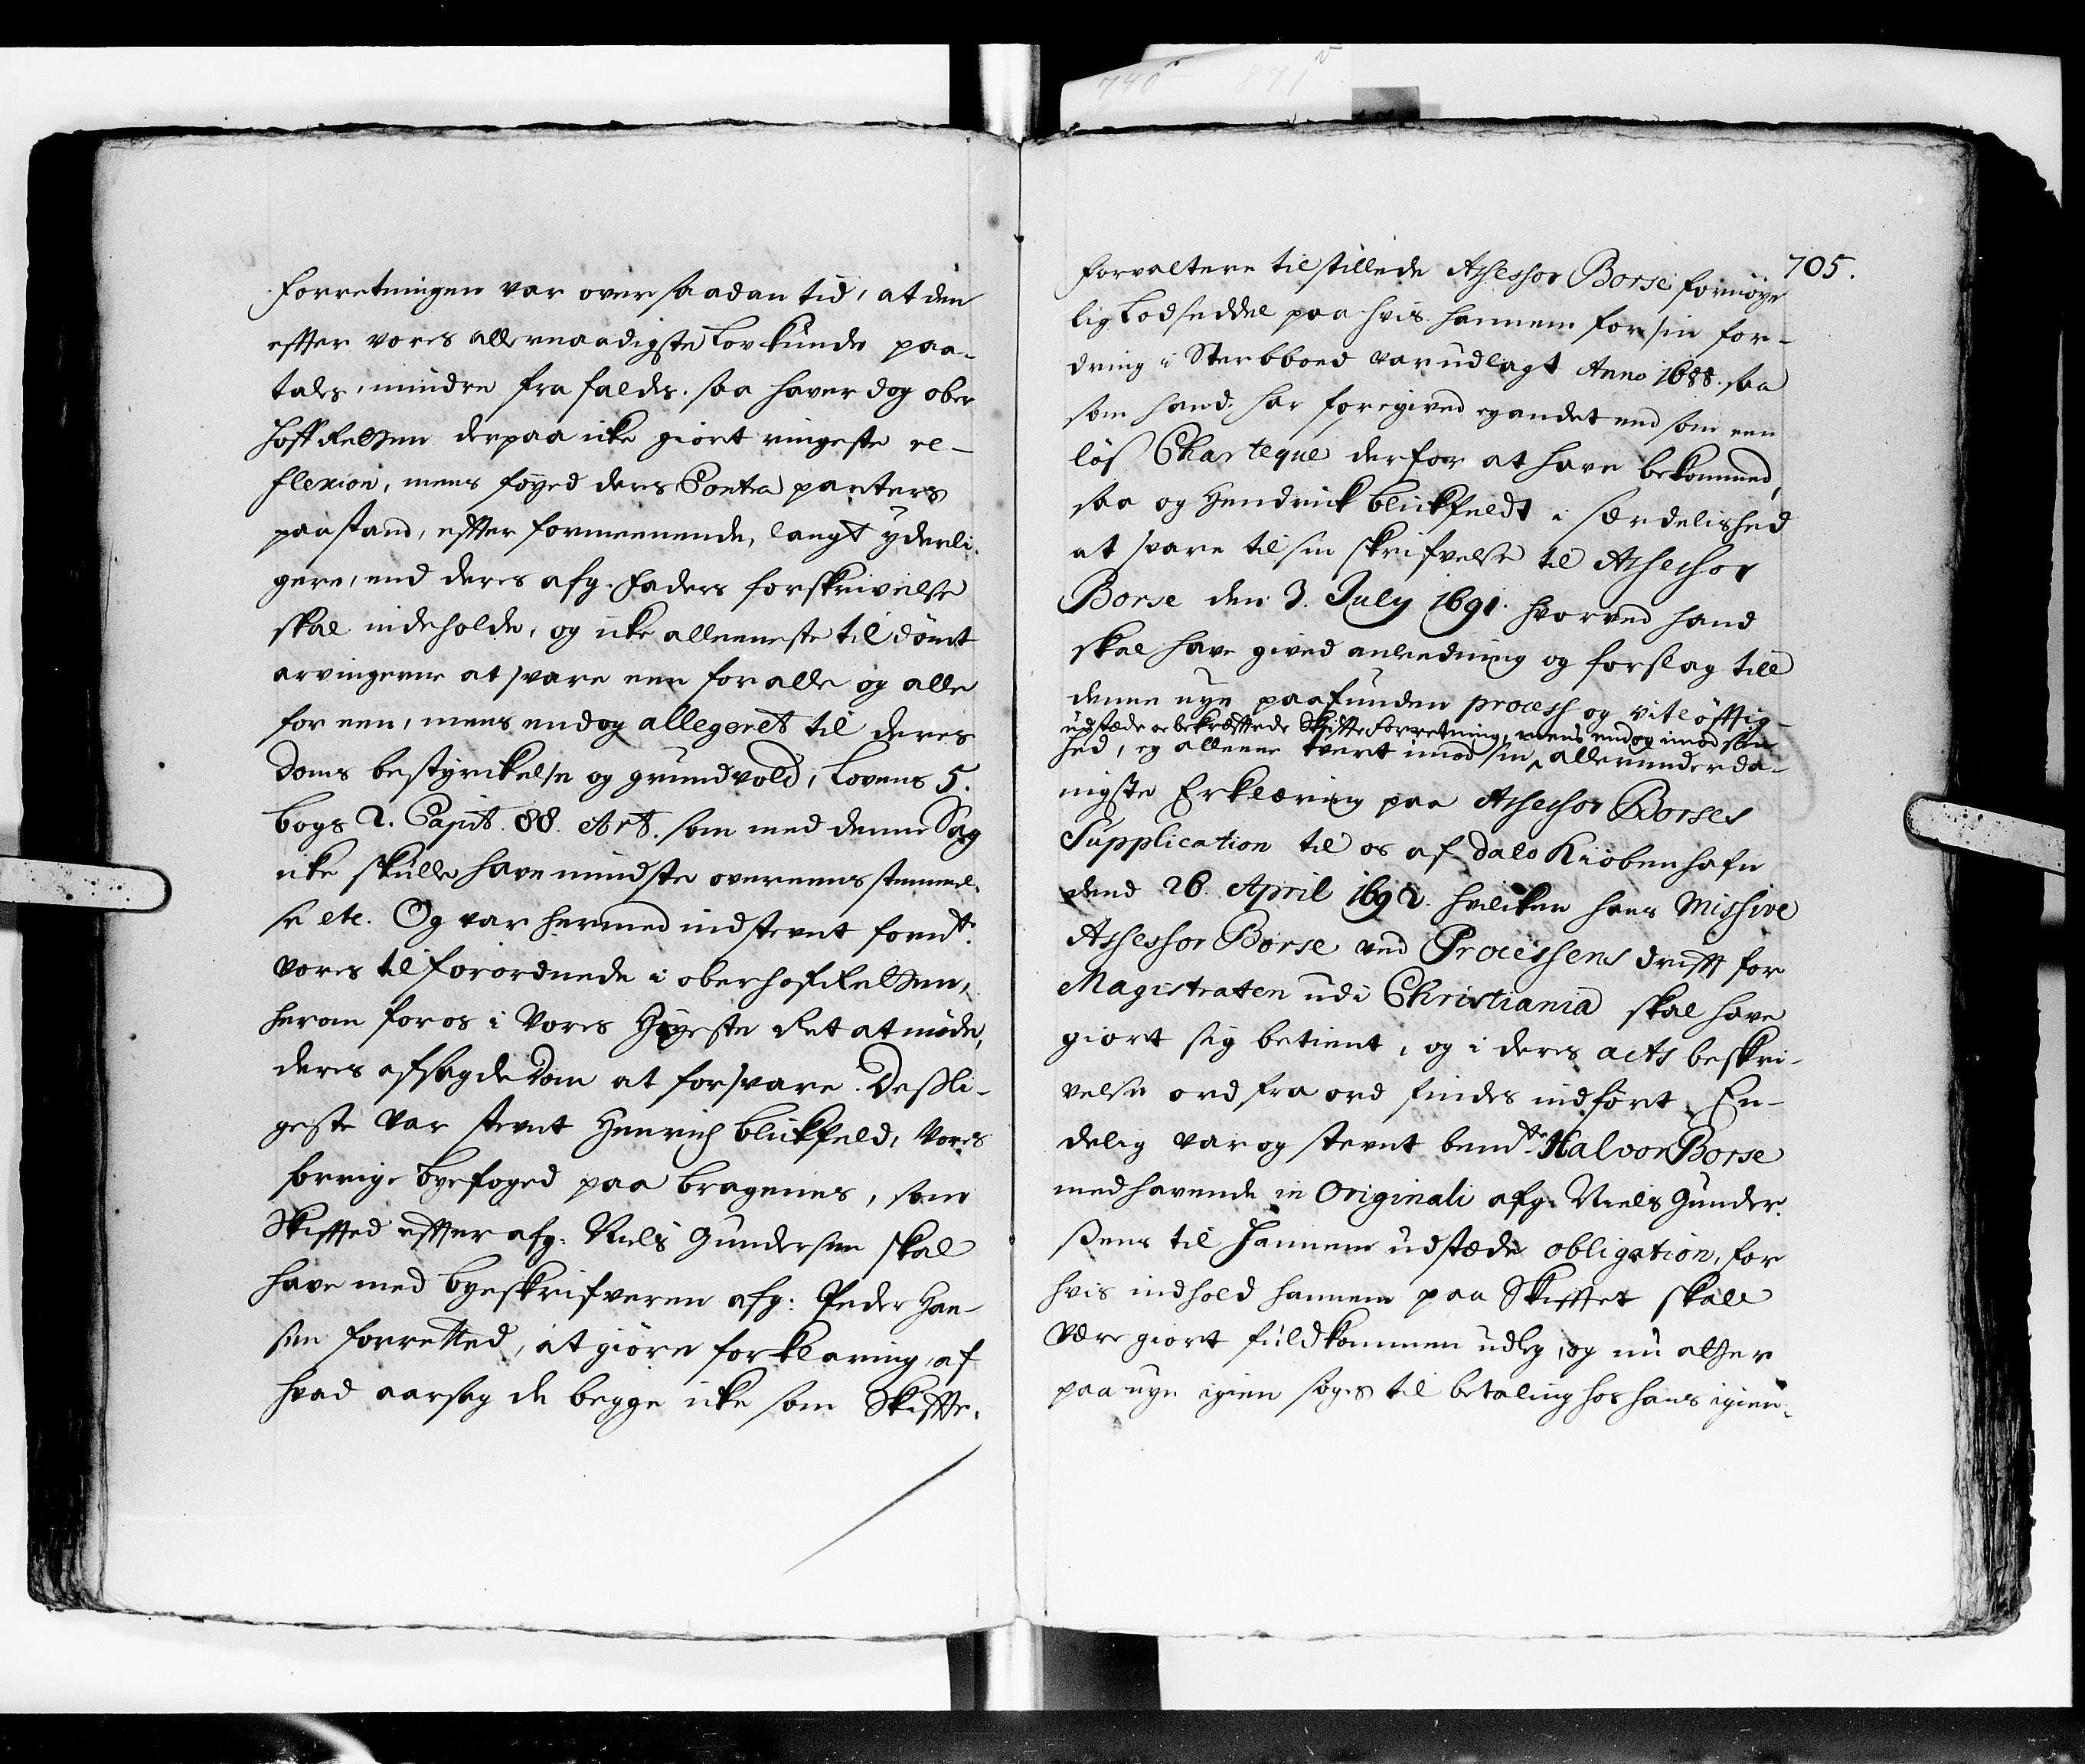 740r 871v
forretningen var over saadan tid, at den
effter vores allernaadigste Lov kunde paa-
tales, mindre fra faldes. saa haver dog ober
hoffRetten derpaa icke giort ringeste re-
flexion, mens föyed deres Contra parters
paastand, effter formeenende, langt yderli-
gere, end deres afg. Faders forskrivelse
skal indeholde, og icke alleeneste tildömt
arvingerne at svare een for alle og alle
for een, mens endog allegeret til deres
doms bestyrckelse og grundvold, Lovens 5.
bogs 2. Capit. 88. Art. som med denne Sag
icke skulle have mindste overeensstemmel-
se etc. Og var hermed indstevnt forndte.
vores tilforordnede i oberhofRetten,
herom for os i Vores Högeste Ret at möde,
deres afsagde dom at forsvare. Desli-
geste var stevnt Henrich Blickfeld, Vores
forrige byefoged paa Bragenes, som
Skifftet effter afg: Niels Gundersen skal
have med byeskrifveren afg: Peder Han-
sen forretted, at giöre forklaring, af
hvad aarsag de begge icke som Skiffte-
705.
forvaltere tilstillede Assessor Borse fornöye
lig Lodseddel paa hvis hannem for sin for-
dring i Sterbboed var udlagt Anno 1688. saa
som hand har foregived ey andet end som een
lös Charteque derfor at have bekommed,
saa og Hendrick Blickfeldt i særdelished
at svare til sin skrifvelse til Assessor
Borse den 3. July 1691. hvorved hand
skal have gived anledning og forslag till
denne nye paafunden process og vitlöfftig-
udstæde og bekræfftede Skiffte forretning, mens endog imod sin
hed, ey alleene tvert imod sin ^ allerunderda-
nigste Erklæring paa Assessor Borses
Supplication til os af dato Kiöbenhafn
dend 26. April 1692. hvilcken hans Missive
Assessor Borse ved Processens drifft for
Magistraten udi Christiania skal have
giort sig betient, og i deres acts beskri-
velse ord fra ord findes indfört. En-
delig var og stevnt bemdte Halvor Borse
medhavende in Originali afg: Niels Gunder-
sens til Hannem udstæde obligation, for
hvis indhold hannem paa Skifftet skall
være giort fuldkommen udleg, og nu atter
paa nye igien söges til betaling hos hans igien-